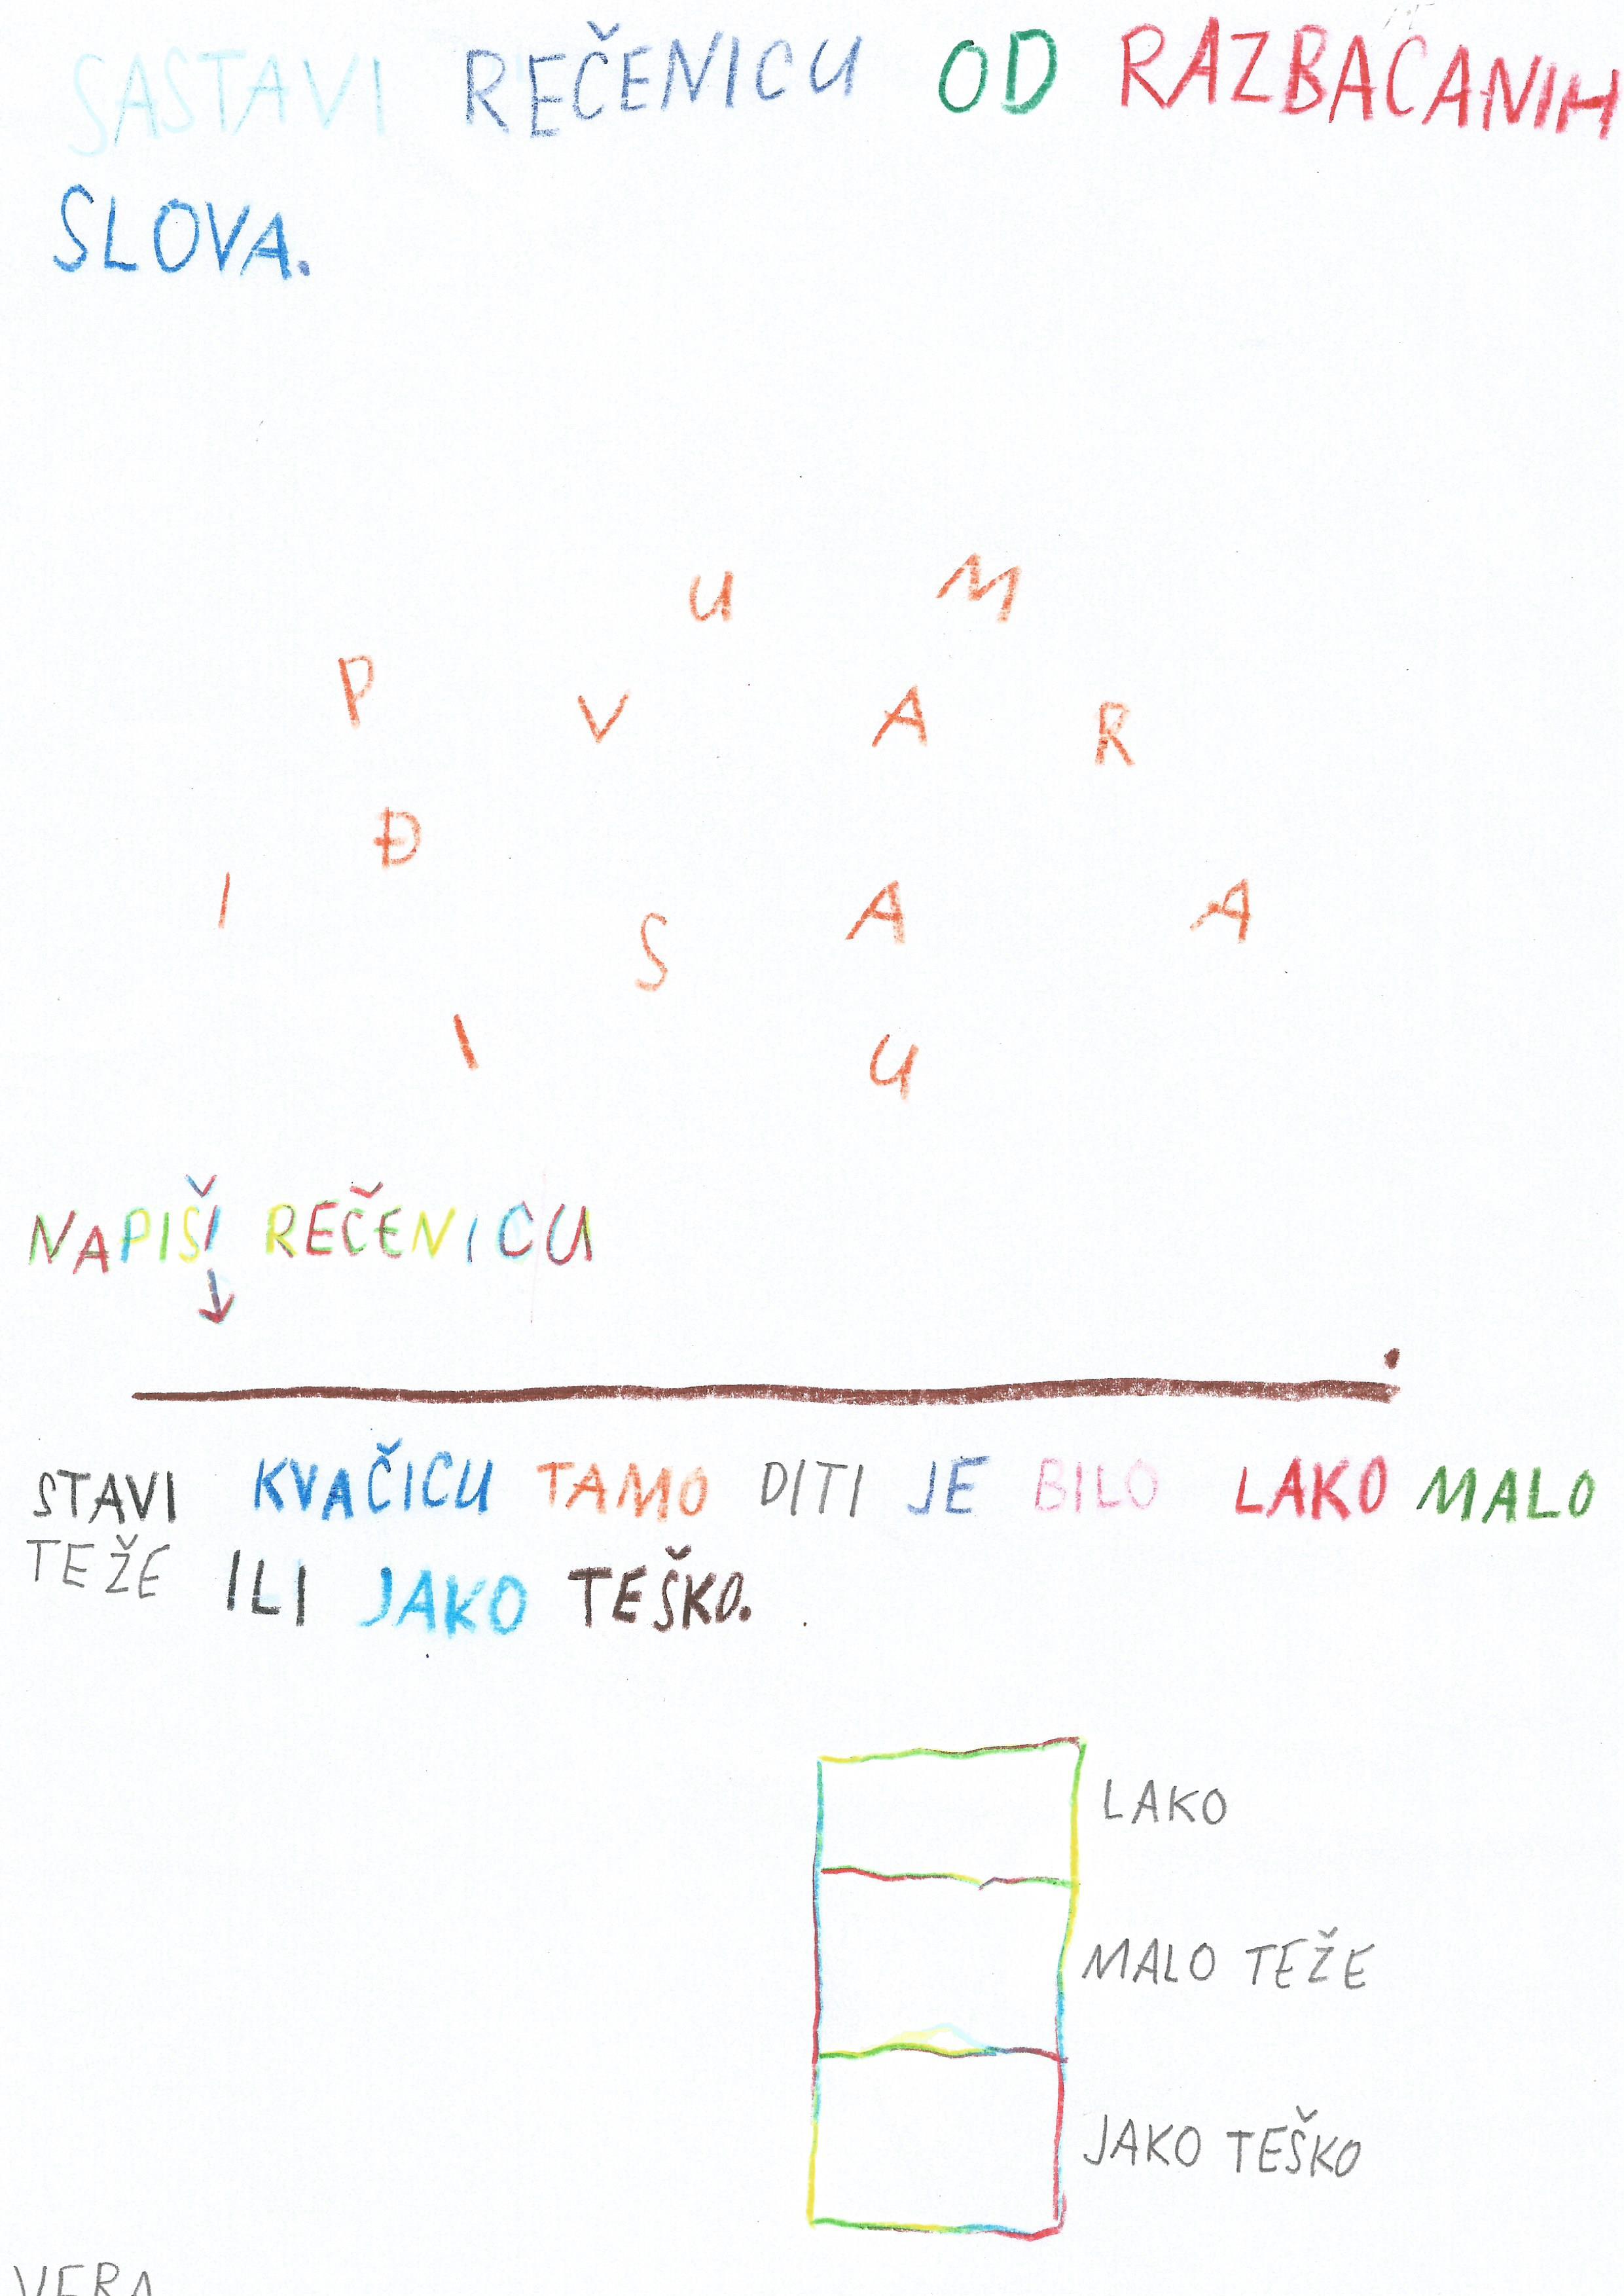 SASTAVI REČENICU OD RAZBACANIH
SLOVA.
U M
P V A R
Đ
I S A A
I U
NAPIŠI REČENICU
STAVI KVAČICU TAMO DITI JE BILO LAKO MALO
TEŽE ILI JAKO TEŠKO.
LAKO
MALO TEŽE
JAKO TEŠKO
VERA